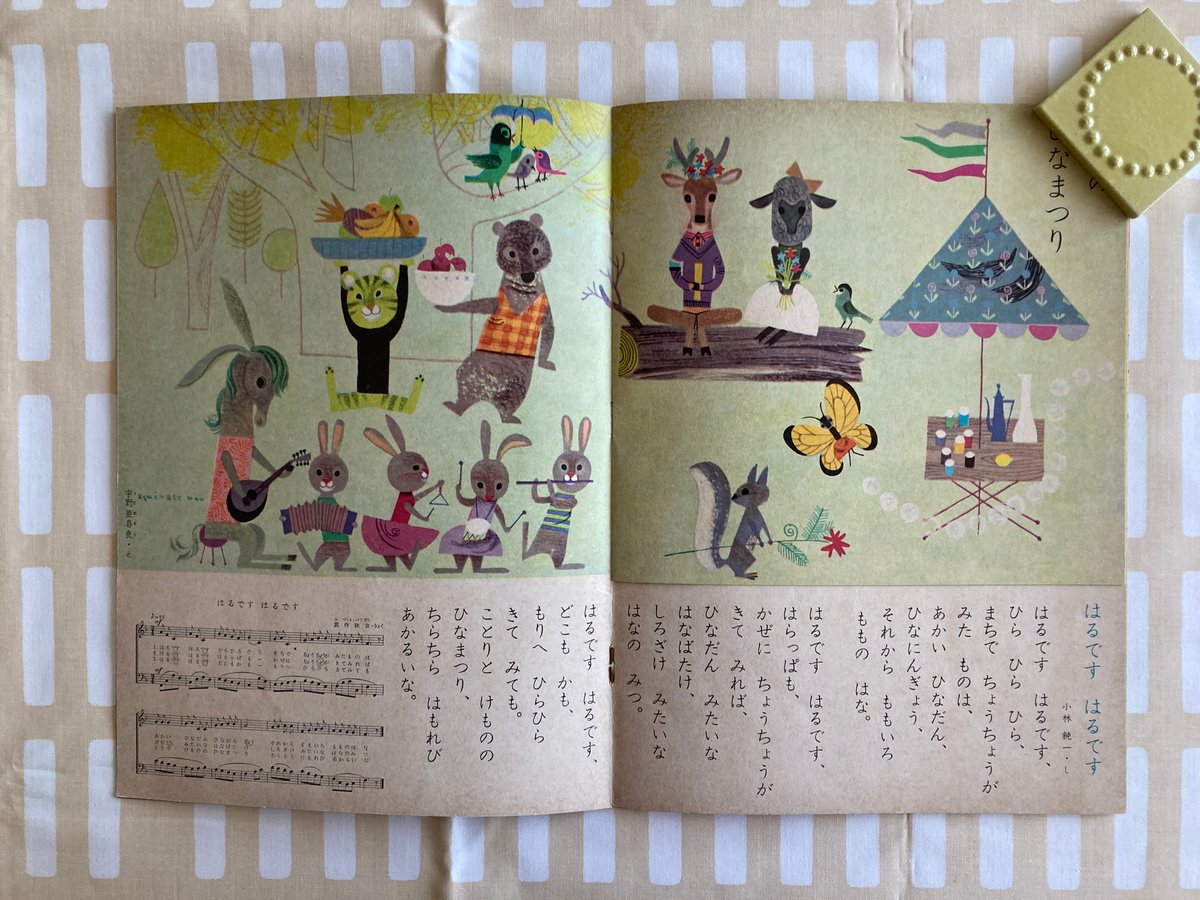 なまつり
はるです　はるです
小林　純一・し
はるです　はるです、
ひら　ひら　ひら、
まちで　ちょうちょうが
みた　ものは、
あかい　ひなだん、
ひなにんぎょう、
それから　ももいろ
ももの　はな。
はるです　はるです、
はらっぱも、
かぜに　ちょうちょうが
きて　みれば、
ひなだん　みたいな
はなばたけ、
しろざけ　みたいな
はなの　みつ。
はるです　はるです、
どこも　かも、
もりへ　ひらひら
きて　みても。
ことりと　けものの
ひなまつり、
ちらちら　はもれび
あかるいな。
宇野亜喜良・え
はるです はるです